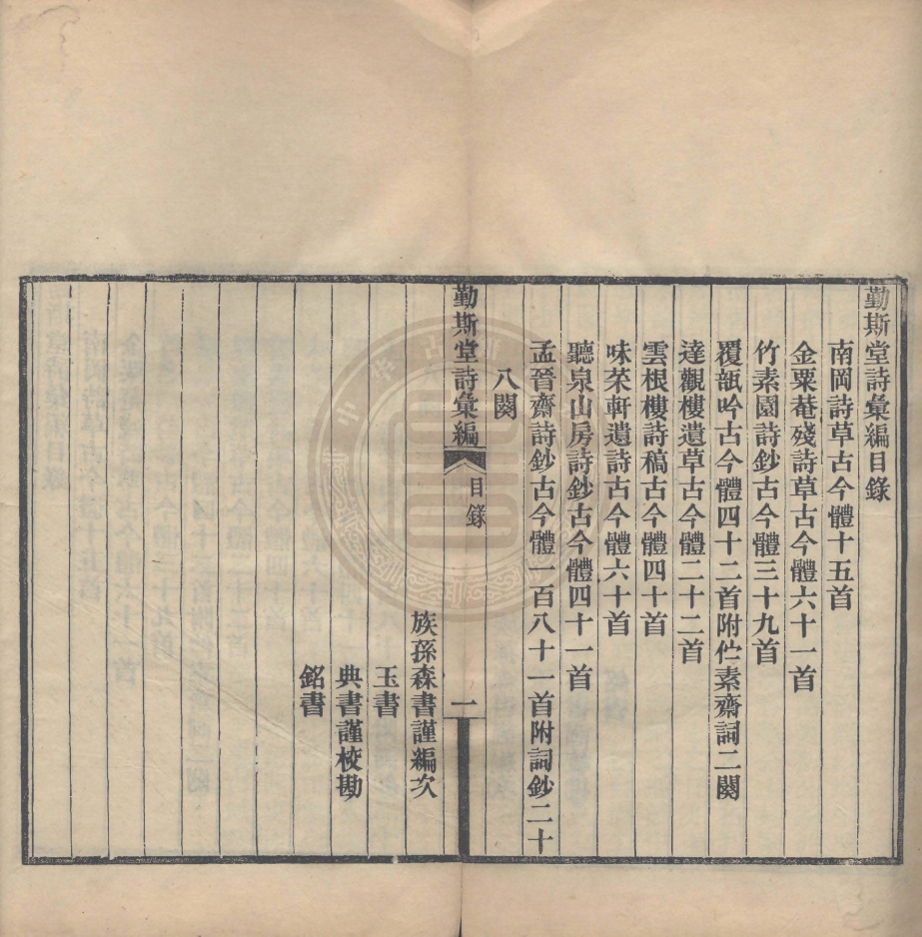 勤斯堂詩彙編目錄
南岡詩草古今體十五首
金粟菴殘詩草古今體六十一首
竹素園詩鈔古今體三十九首
覆瓿吟古今體四十二首附伫素齋詞二闋
達觀樓遺草古今體二十二首
雲根樓詩稿古今體四十首
味茶軒遺詩古今體六十首
聽泉山房詩鈔古今體四十一首
孟晉齋詩鈔古今體一百八十一首附詞鈔二十
八闋
勤斯堂詩彙編
目錄
一
族孫森書謹編次
玉書
典書謹校勘
銘書